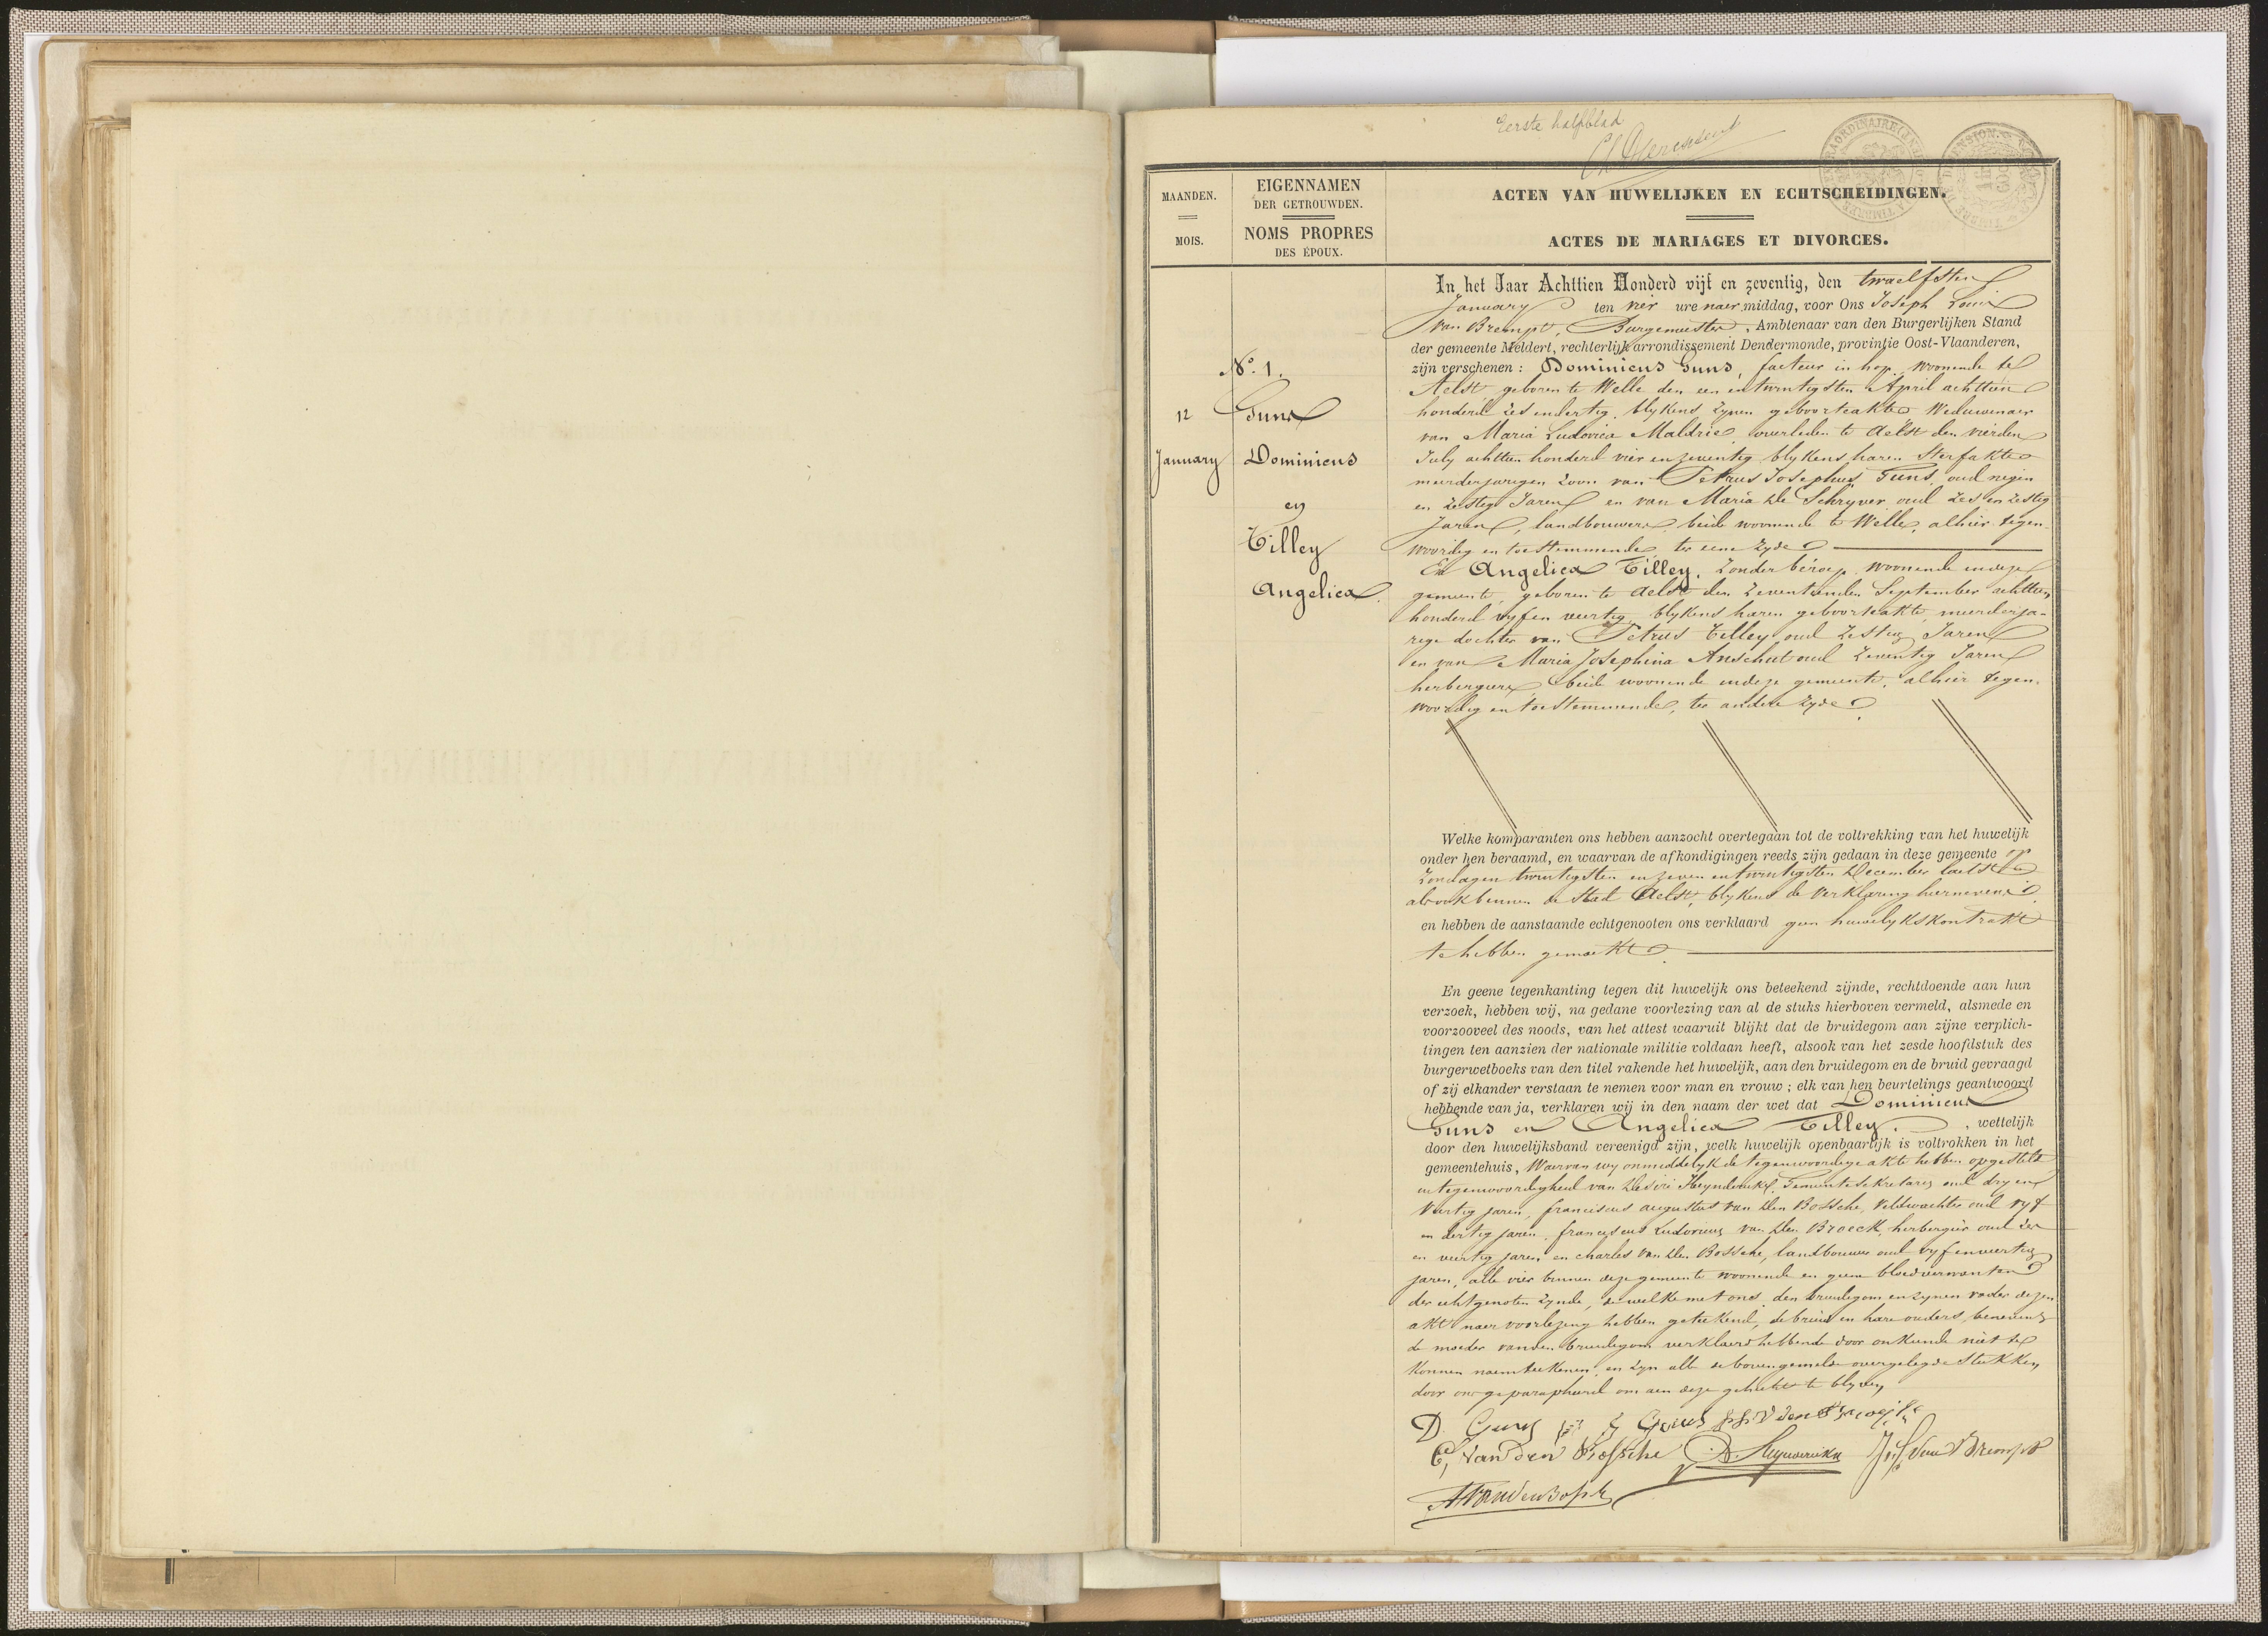 Eerste halfblad
MAANDEN.
MOIS.
EIGENNAMEN
DER GETROUWDEN.
NOMS PROPRES
DES ÉPOUX.
ACTEN VAN HUWELIJKEN EN ECHTSCHEIDINGEN.
ACTES DE MARIAGES ET DIVORCES.
N.º 1.
12
January
Guns
Dominicus
en
Tilley
Angelica.
In het Jaar Achttien Honderd vijf en zeventig, den twaelfsten
January ten vier ure naer middag, voor Ons Joseph Louis
Van Brempt, Burgemeester, Ambtenaar van den Burgerlijken Stand
der gemeente Meldert, rechterlijk arrondissement Dendermonde, provintie Oost-Vlaanderen,
zijn verschenen: Dominicus Guns, facteur in hop, woonende te
Aelst, geboren te Welle den een en twintigsten April achttien
honderd zes en dertig, blykens zynen geboorteakte Weduwenaer
van Maria Ludovica Maldrie, overleden te Aelst den vierden
July achttien honderd vier en zeventig blykens haren sterfakte
meerderjarigen zoon van Petrus Josephus Guns, oud negen
en zestig Jaren en van Maria De Schryver oud zes en zestig
Jaren, landbouwers, beide woonende te Welle, alhier tegen-
woordig en toestemmende, ter eene zyde
En Angelica Tilley, zonder beroep, woonende in deze
gemeente, geboren te Aelst den zeventienden September achttien
honderd vyf en veertig, blykens haren geboorteakte, meerderja-
rige dochter van Petrus Tilley oud zestig Jaren
en van Maria Josephina Anschut oud zeventig Jaren
herbergiers, beide woonende in deze gemeente, alhier tegen-
woordig en toestemmende, ter andere zyde
Welke komparanten ons hebben aanzocht overtegaan tot de voltrekking van het huwelijk
onder hen beraamd, en waarvan de afkondigingen reeds zijn gedaan in deze gemeente op
Zondagen twintigsten en zeven en twintigsten December laetst
alsook binnen de Stad Aelst, blykens de verklaring hiernevens
en hebben de aanstaande echtgenooten ons verklaard geen huwelykskontrakt
te hebben gemaekt.
En geene tegenkanting tegen dit huwelijk ons beteekend zijnde, rechtdoende aan hun
verzoek, hebben wij, na gedane voorlezing van al de stuks hierboven vermeld, alsmede en
voorzooveel des noods, van het attest waaruit blijkt dat de bruidegom aan zijne verplich-
tingen ten aanzien der nationale militie voldaan heeft, alsook van het zesde hoofdstuk des
burgerwetboeks van den titel rakende het huwelijk, aan den bruidegom en de bruid gevraagd
of zij elkander verstaan te nemen voor man en vrouw; elk van hen beurtelings geantwoord
hebbende van ja, verklaren wij in den naam der wet dat Dominicus
Guns en Angelica Tilley, wettelijk
door den huwelijksband vereenigd zijn, welk huwelijk openbaarlijk is voltrokken in het
gemeentehuis, Waervan wy onmiddelyk de tegenwoordige akte hebben opgesteld
in tegenwoordigheid van Desiré Heynderickx, Gemeentesekretaris oud dry en
veertig jaren, franciscus augustus Van Den Bossche, Veldwachter oud vyf
en dertig jaren, franciscus Ludovicus Van Den Broeck, herbergier oud zes
en veertig jaren en charles Van Den Bossche, landbouwer oud vyf en veertig
jaren, alle vier binnen deze gemeente woonende en geene bloedverwanten
der echtgenoten zynde, dewelke met ons, den bruidegom en zynen vader dezen
akt naer voorlezing hebben geteekend, de bruid en hare ouders, benevens
de moeder van den bruidegom verklaerd hebbende door onkunde niet te
konnen naemteekenen, en zyn alle de bovengemelde overgelegde stukken
door ons geparapheerd om aen deze gehecht te blyven
D. Guns
C, Van den Bossche D. Heynderickx Jos. Van Brempt
A Vandenbossche